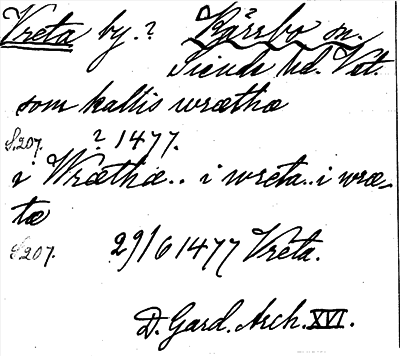 Vreta by.? Kärrbo sn.
Siende hd. Vst.
som kallis wræthæ
S.207. ? 1477.
i Wræthæ.. i wreta.. i wræ-
tæ
S207. 29/6 1477 Vreta.
D. Gard. Arch. XVI.